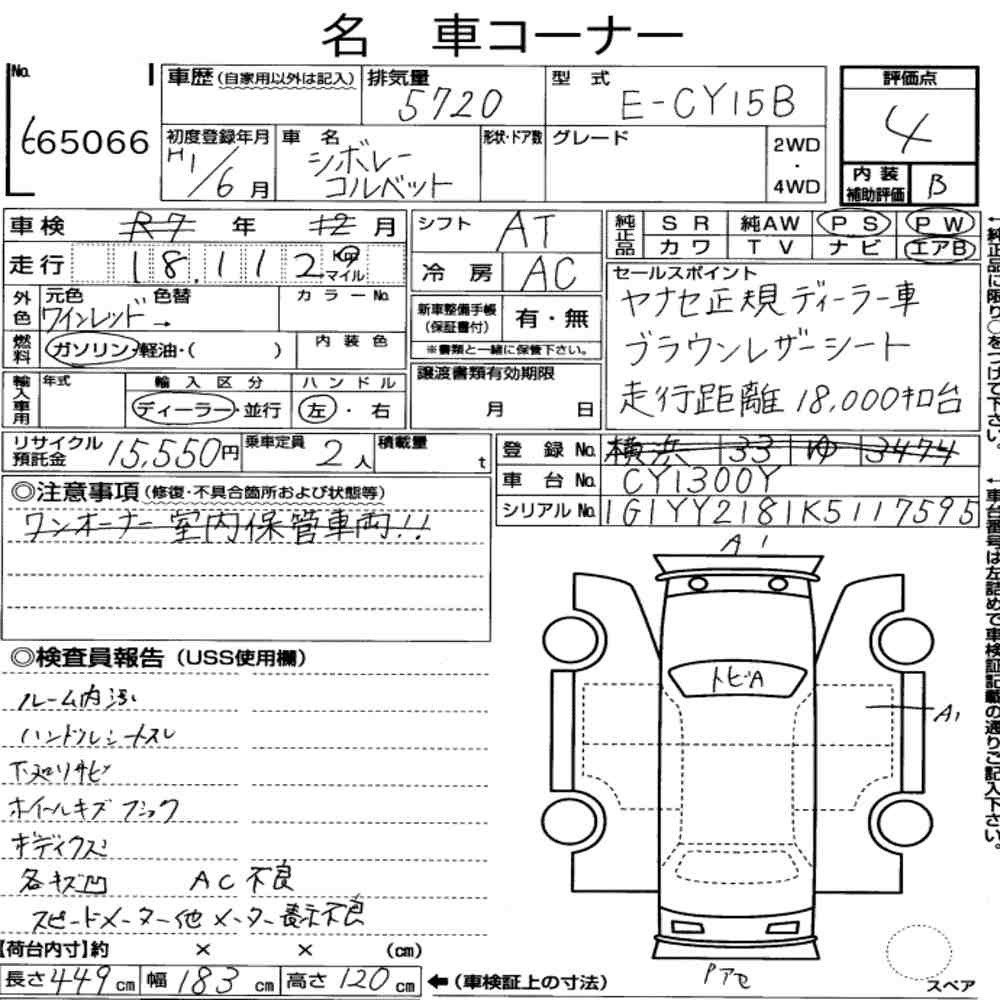 名 車コーナー
No. 665066
車歴(自家用以外は記入) 排気量 5720 型式 E-CY15B 評価点 4
初度登録年月 H1/6月 車名 シボレー コルベット 形状・ドア数 グレード 2WD・4WD 内装補助評価 B
車検 R7年 12月 シフト AT 純正品 SR 純AW PS PW
カワ TV ナビ エアB
走行 18,112 km マイル 冷房 AC
外色 元色 色替 カラーNo.
ワインレッド→
新車整備手帳(保証書付) 有・無
※書類と一緒に保管下さい。
燃料 ガソリン・軽油・( ) 内装色
輸入車用 年式 輸入区分 ハンドル
ディーラー・並行 左・右
譲渡書類有効期限
月 日
セールスポイント
ヤナセ正規ディーラー車
ブラウンレザーシート
走行距離18,000キロ台
←純正品に限り○をつけて下さい。
リサイクル預託金 15,550円 乗車定員 2人 積載量 t
登録No. 横浜 33 ゆ 3474
車台No. CY1300Y
シリアルNo. 1G1YY2181K5117595
←車台番号は左詰めで車検証記載の通りご記入下さい。
◎注意事項(修復・不具合箇所および状態等)
ワンオーナー 室内保管車両!!
◎検査員報告(USS使用欄)
ルーム内汚
ハンドルシートスレ
下廻りサビ
ホイールキズ フショク
ボディクスミ
各キズ凹 AC不良
スピードメーター他メーター表示不良
A1
トビA
A1
【荷台内寸】約 × × (cm)
長さ449cm 幅183cm 高さ120cm ←(車検証上の寸法)
スペア